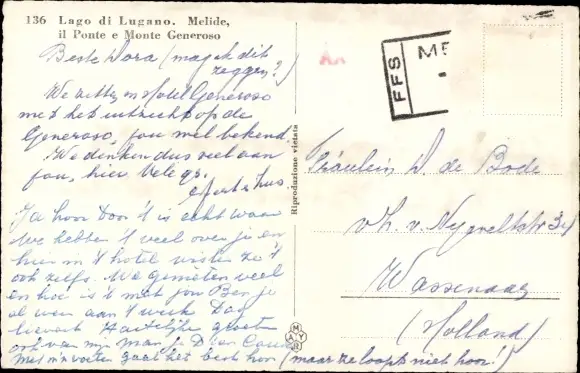 136 Lago di Lugano. Melide,
il Ponte e Monte Generoso
Beste Dora (mag ik dit
zeggen?)
We zitten in Hotel Generoso
met het uitzicht op de
Generoso, jou wel bekend.
We denken dus veel aan
jou, hier.
Ja hoor Door 't is echt waar
We hebben 't veel over je en
hier in 't hotel wisten ze 't
ook zelfs. We genieten veel
en hoe is 't met jou Ben je
al weer aan 't werk Dag
Hartelijke groeten
ook van mijn man je
Met m'n voeten gaat het best hoor (maar ze loopt niet hoor!)
Riproduzione vietata
MAYR
FFS
ME
Fräulein D. de Bode
v/h. v.
Wassenaar
(Holland)